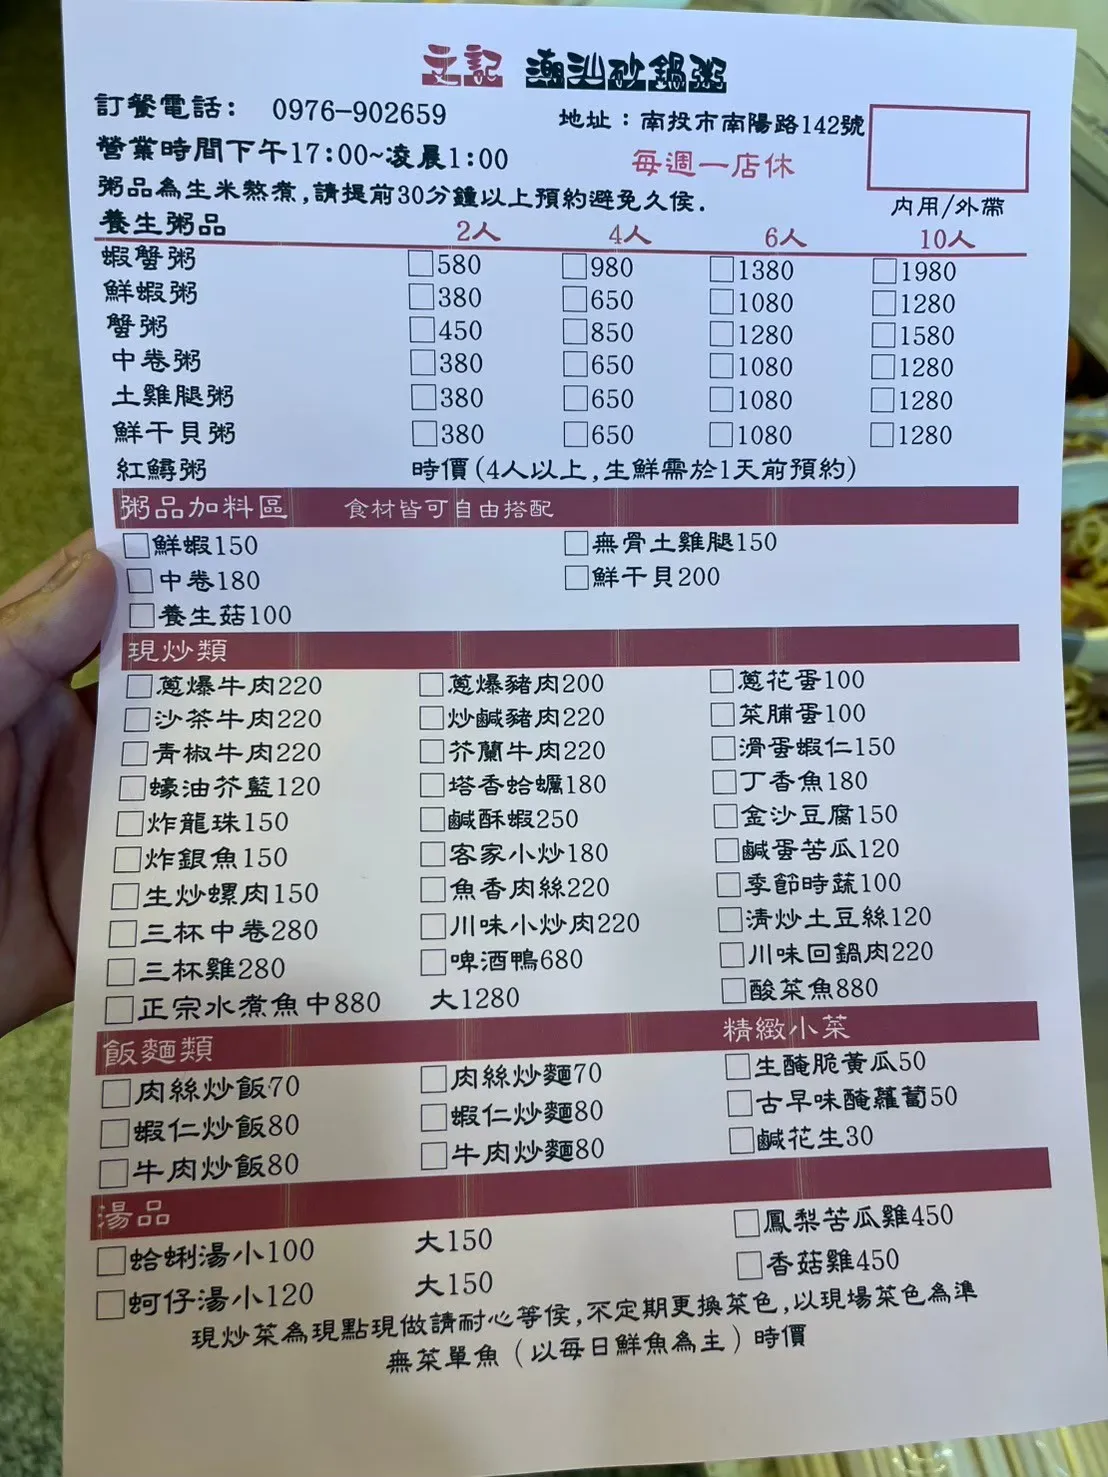 文記 潮汕砂鍋粥
訂餐電話: 0976-902659
地址：南投市南陽路142號
營業時間下午17:00~凌晨1:00
每週一店休
粥品為生米熬煮,請提前30分鐘以上預約避免久侯.
內用/外帶
養生粥品 2人 4人 6人 10人
蝦蟹粥 □580 □980 □1380 □1980
鮮蝦粥 □380 □650 □1080 □1280
蟹粥 □450 □850 □1280 □1580
中卷粥 □380 □650 □1080 □1280
土雞腿粥 □380 □650 □1080 □1280
鮮干貝粥 □380 □650 □1080 □1280
紅鱘粥 時價(4人以上,生鮮需於1天前預約)
粥品加料區 食材皆可自由搭配
□鮮蝦150 □無骨土雞腿150
□中卷180 □鮮干貝200
□養生菇100
現炒類
□蔥爆牛肉220 □蔥爆豬肉200 □蔥花蛋100
□沙茶牛肉220 □炒鹹豬肉220 □菜脯蛋100
□青椒牛肉220 □芥蘭牛肉220 □滑蛋蝦仁150
□蠔油芥藍120 □塔香蛤蠣180 □丁香魚180
□炸龍珠150 □鹹酥蝦250 □金沙豆腐150
□炸銀魚150 □客家小炒180 □鹹蛋苦瓜120
□生炒螺肉150 □魚香肉絲220 □季節時蔬100
□三杯中卷280 □川味小炒肉220 □清炒土豆絲120
□三杯雞280 □啤酒鴨680 □川味回鍋肉220
□正宗水煮魚中880 大1280 □酸菜魚880
飯麵類 精緻小菜
□肉絲炒飯70 □肉絲炒麵70 □生醃脆黃瓜50
□蝦仁炒飯80 □蝦仁炒麵80 □古早味醃蘿蔔50
□牛肉炒飯80 □牛肉炒麵80 □鹹花生30
湯品
□蛤蜊湯小100 大150 □鳳梨苦瓜雞450
□蚵仔湯小120 大150 □香菇雞450
現炒菜為現點現做請耐心等侯,不定期更換菜色,以現場菜色為準
無菜單魚（以每日鮮魚為主）時價